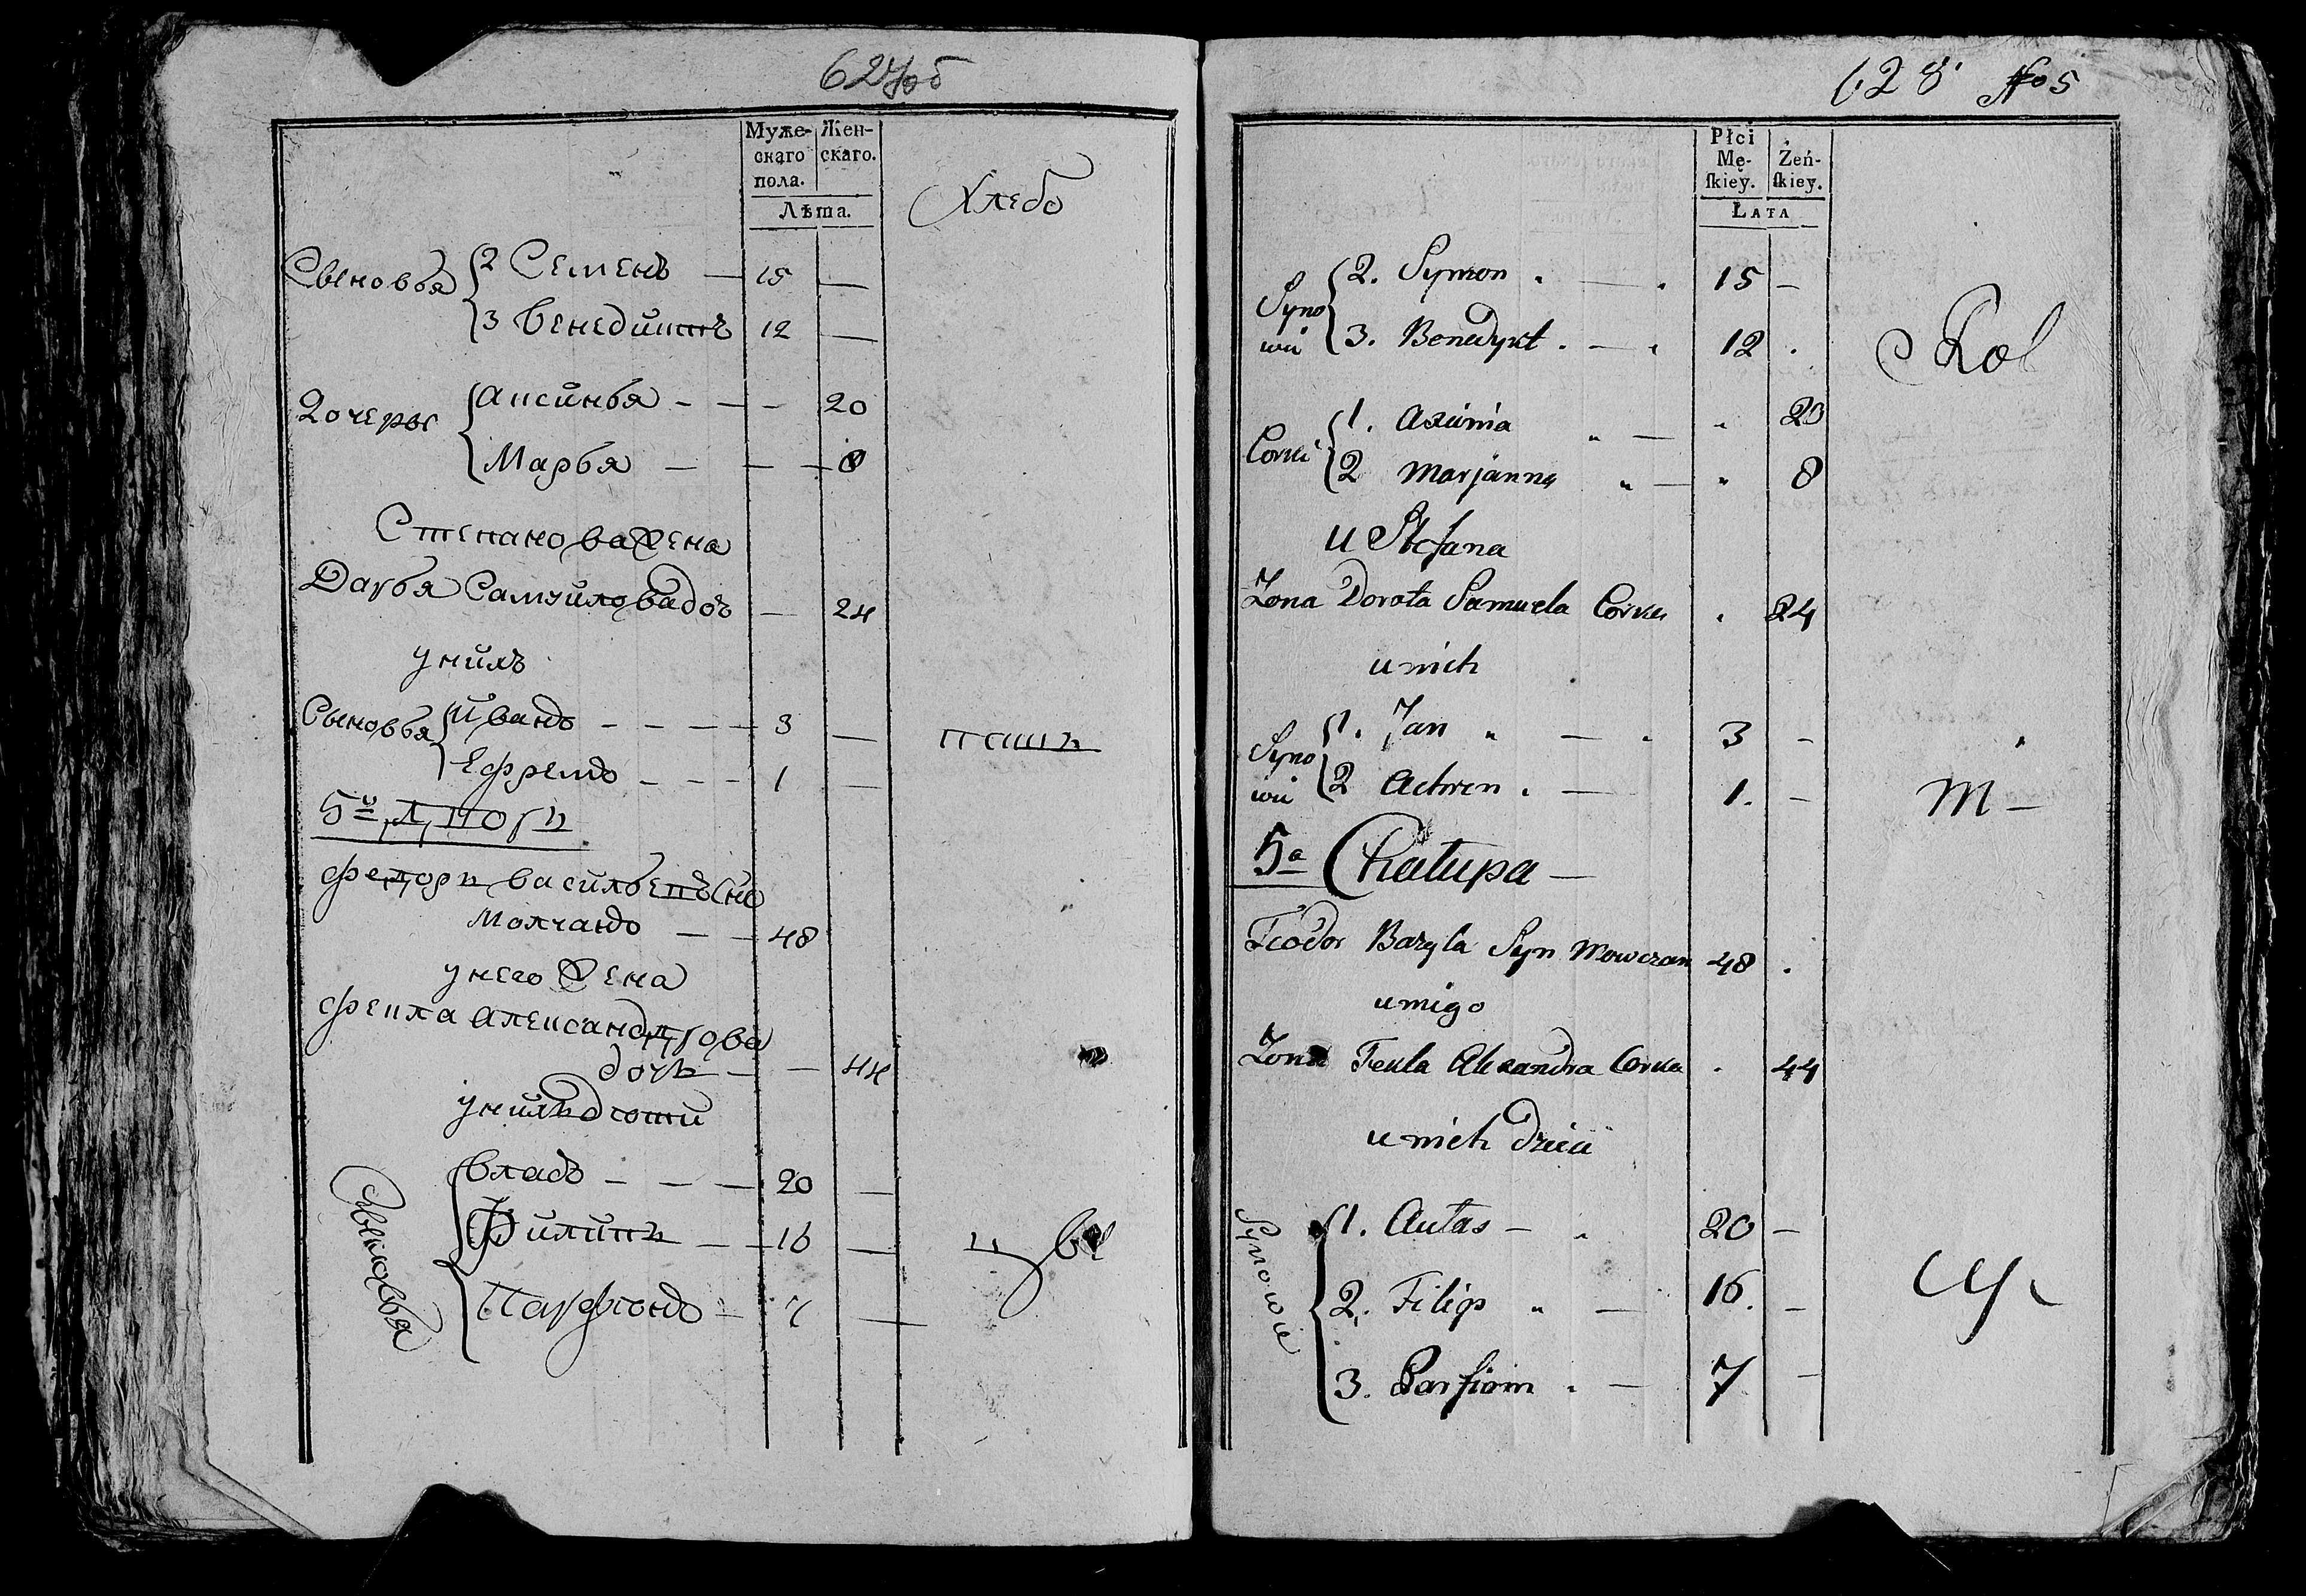 627об
Муже-
скаго
пола.
Жен-
скаго.
Лѣта.
Хлебо
Сыновья
2 Семенъ — 15 —
3 Бенедиктъ 12 —
Дочеры
Аксинья - — - 20
Марья — — — 8
Степанова жена
Дарья Самуилова дочъ — 24
у нихъ
Сыновья
Иванъ - - - — 3 —
Ефремъ - - - 1 —
паш
5й
Федоръ Васильевъ Снъ
Молчанъ — — 48
у него жена
Фекла Александрова
дочь — — 44
у нихъ дети
Сыновья
Владъ - - - — 20 —
Филипъ — — 16 —
Парфіонъ — 7 —
ц ы
628 № 5
Płci
Mę-
skiey.
Żeń-
skiey.
Lata
Rol
Syno
wie
2. Symon . — . 15 —
3. Benedykt . — . 12 .
Corki
1. Axinia „ — „ 20
2 Marjanna „ — „ 8
u Stefana
Żona Dorota Samuela Corka . 24
u nich
Syno
wie
1. Jan „ — . 3 —
2 . — 1. —
m —
5a Chałupa —
Teodor Bazyla Syn Mowczan 48 .
u niego
Żona Tekla Alexandra Corka . 44
u nich dzieci
Synowie
1. Autas — . 20 —
2. Filip „ — 16. —
3. Parfiom . — 7 —